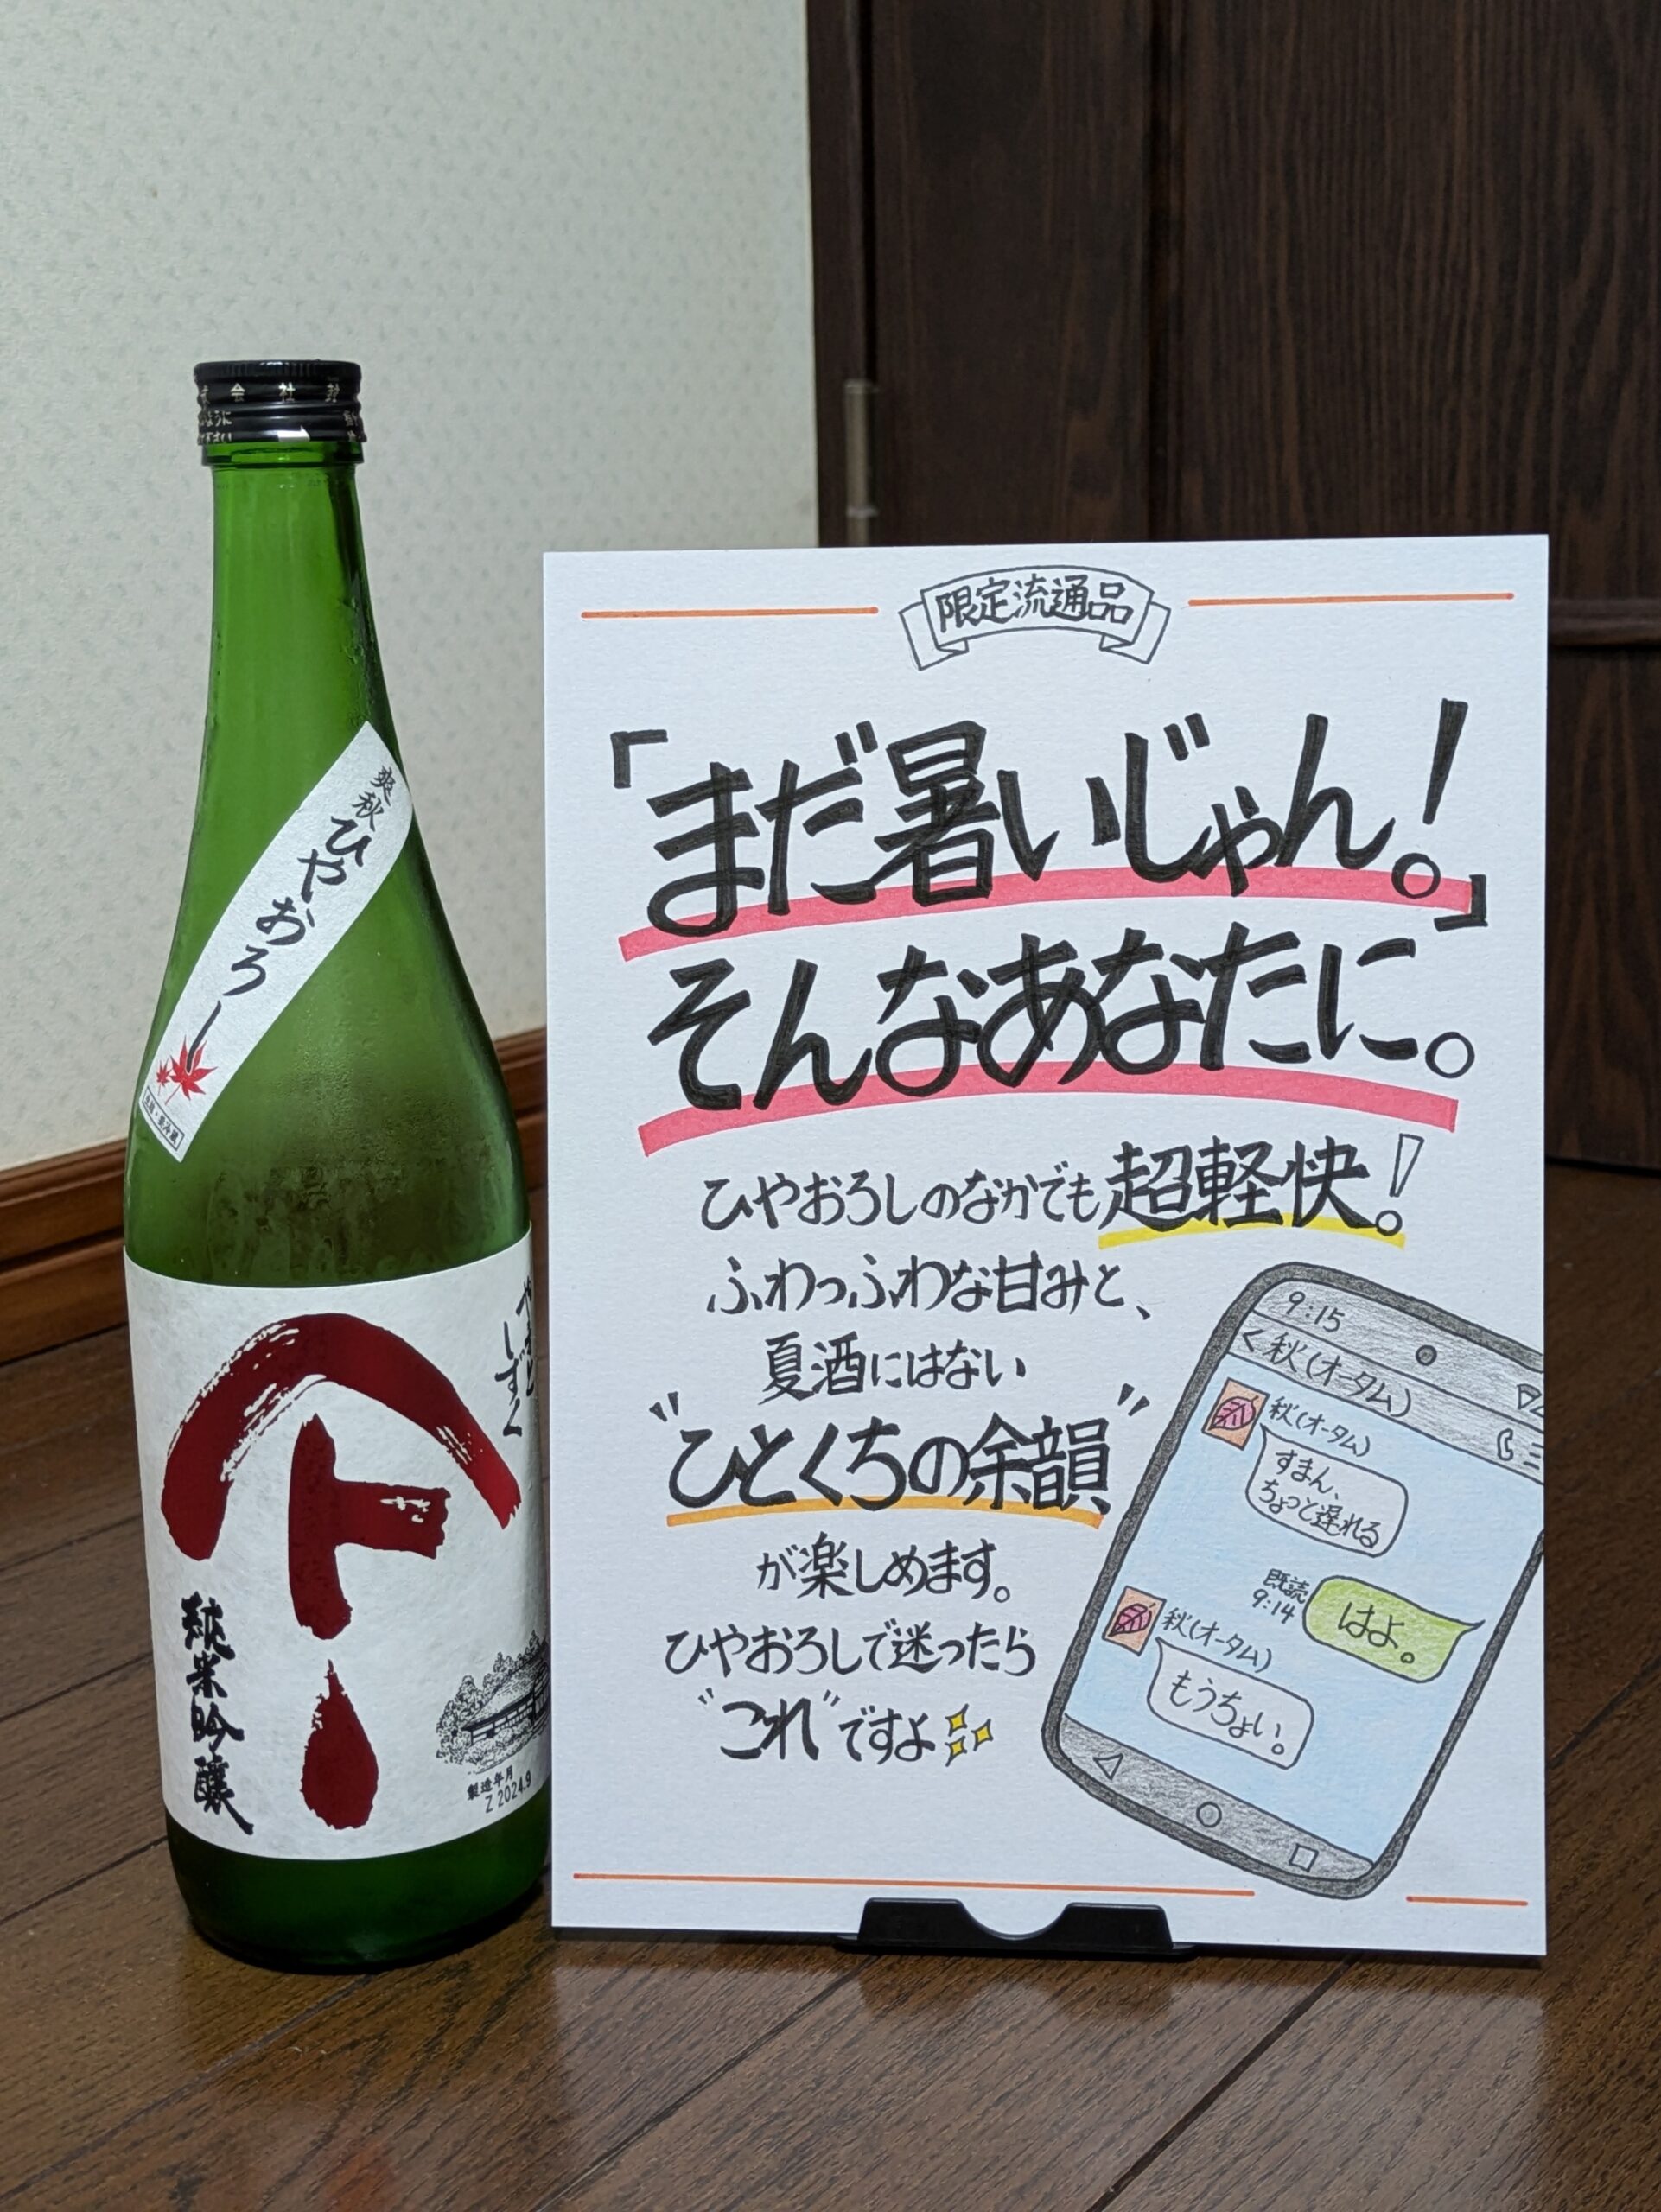 会社
爽秋 ひやおろし
生詰・要冷蔵
やまと
しずく
ト
純米吟醸
製造年月
Z 2024.9
限定流通品
「まだ暑いじゃん！。」
そんなあなたに。
ひやおろしのなかでも超軽快！。
ふわっふわな甘みと、
夏酒にはない
"ひとくちの余韻"
が楽しめます。
ひやおろしで迷ったら
"これ"ですよ
9:15
<秋(オータム)
秋(オータム)
すまん、
ちょっと遅れる
既読
9:14
はよ。
秋(オータム)
もうちょい。